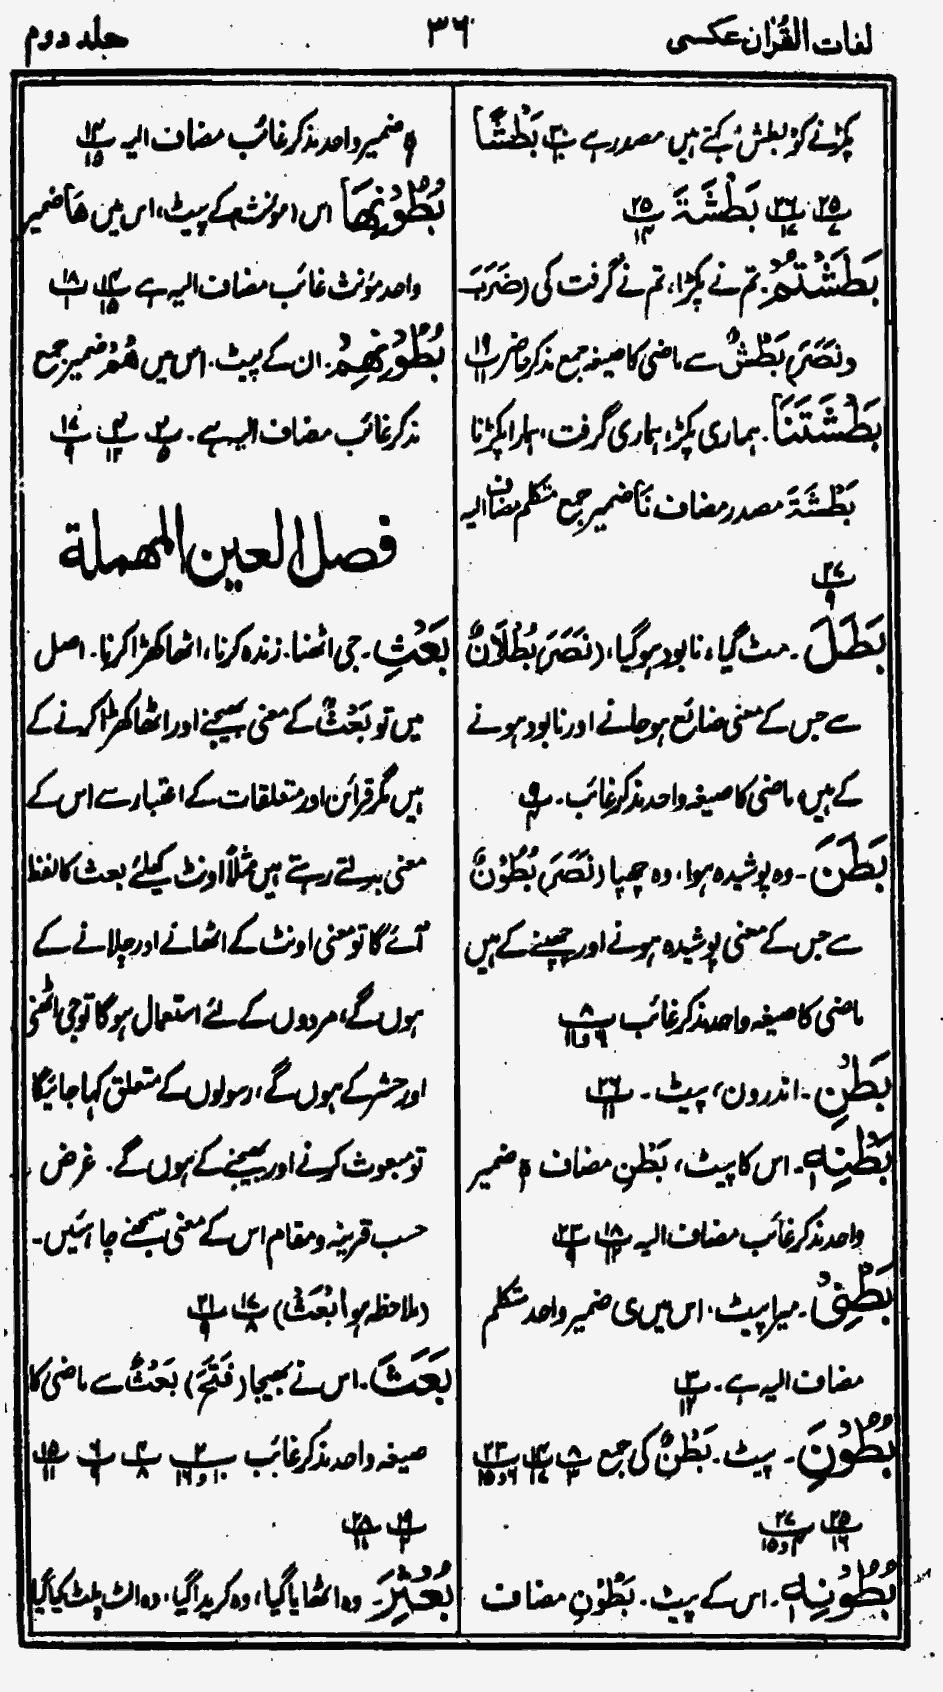 لغات القرآن عکسی
۳۶
جلد دوم
پکڑنے کو بطش کہتے ہیں مصدر ہے بَطْشًا
بَطْشَةَ
بَطَشْتُمْ۔ تم نے پکڑا، تم نے گرفت کی (ضَرَبَ
و نَصَرَ) بَطْشٌ سے ماضی کا صیغہ جمع مذکر حاضر
بَطْشَتَنَا۔ ہماری پکڑ، ہماری گرفت، ہمارا پکڑنا
بَطْشَةَ مصدر مضاف نَا ضمیر جمع متکلم مضاف الیہ
بَطَلَ۔ مٹ گیا، نابود ہوگیا، (نَصَرَ) بُطْلَانٌ
سے جس کے معنی ضائع ہو جانے اور نابود ہونے
کے ہیں، ماضی کا صیغہ واحد مذکر غائب۔
بَطَنَ۔ وہ پوشیدہ ہوا، وہ چھپا (نَصَرَ) بُطُوْنٌ
سے جس کے معنی پوشیدہ ہونے اور چھپنے کے ہیں
ماضی کا صیغہ واحد مذکر غائب
بَطْنِ۔ اندرون، پیٹ۔
بَطْنِهٖ۔ اس کا پیٹ، بَطْنِ مضاف ہٖ ضمیر
واحد مذکر غائب مضاف الیہ
بَطْنِیْ۔ میرا پیٹ، اس میں ی ضمیر واحد متکلم
مضاف الیہ ہے۔
بُطُوْنَ۔ پیٹ۔ بَطْنٌ کی جمع
بُطُوْنِهٖ۔ اس کے پیٹ۔ بُطُوْنِ مضاف
ہٖ ضمیر واحد مذکر غائب مضاف الیہ
بُطُوْنِهَا اس (مؤنث) کے پیٹ، اس میں هَا ضمیر
واحد مؤنث غائب مضاف الیہ ہے
بُطُوْنِهِمْ۔ ان کے پیٹ۔ اس میں هُمْ ضمیر جمع
مذکر غائب مضاف الیہ ہے۔
فصل العین المهملة
بَعْثِ۔ جی اٹھنا۔ زندہ کرنا، اٹھا کھڑا کرنا۔ اصل
میں تو بَعْثٌ کے معنی بھیجنے اور اٹھا کھڑا کرنے کے
ہیں مگر قرائن اور متعلقات کے اعتبار سے اس کے
معنی بدلتے رہتے ہیں مثلاً اونٹ کیلئے بعث کا لفظ
آئے گا تو معنی اونٹ کے اٹھانے اور چلانے کے
ہوں گے، مردوں کے لئے استعمال ہوگا تو جی اٹھنی
اور حشر کے ہوں گے، رسولوں کے متعلق کہا جائیگا
تو مبعوث کرنے اور بھیجنے کے ہوں گے۔ غرض
حسب قرینہ و مقام اس کے معنی سمجھنے چاہئیں۔
(ملاحظہ ہو اُبْعَثُ)
بَعَثَ۔ اس نے بھیجا (فَتَحَ) بَعْثٌ سے ماضی کا
صیغہ واحد مذکر غائب
بُعْثِرَ۔ وہ اٹھایا گیا، وہ کریدا گیا، وہ الٹ پلٹ کیا گیا